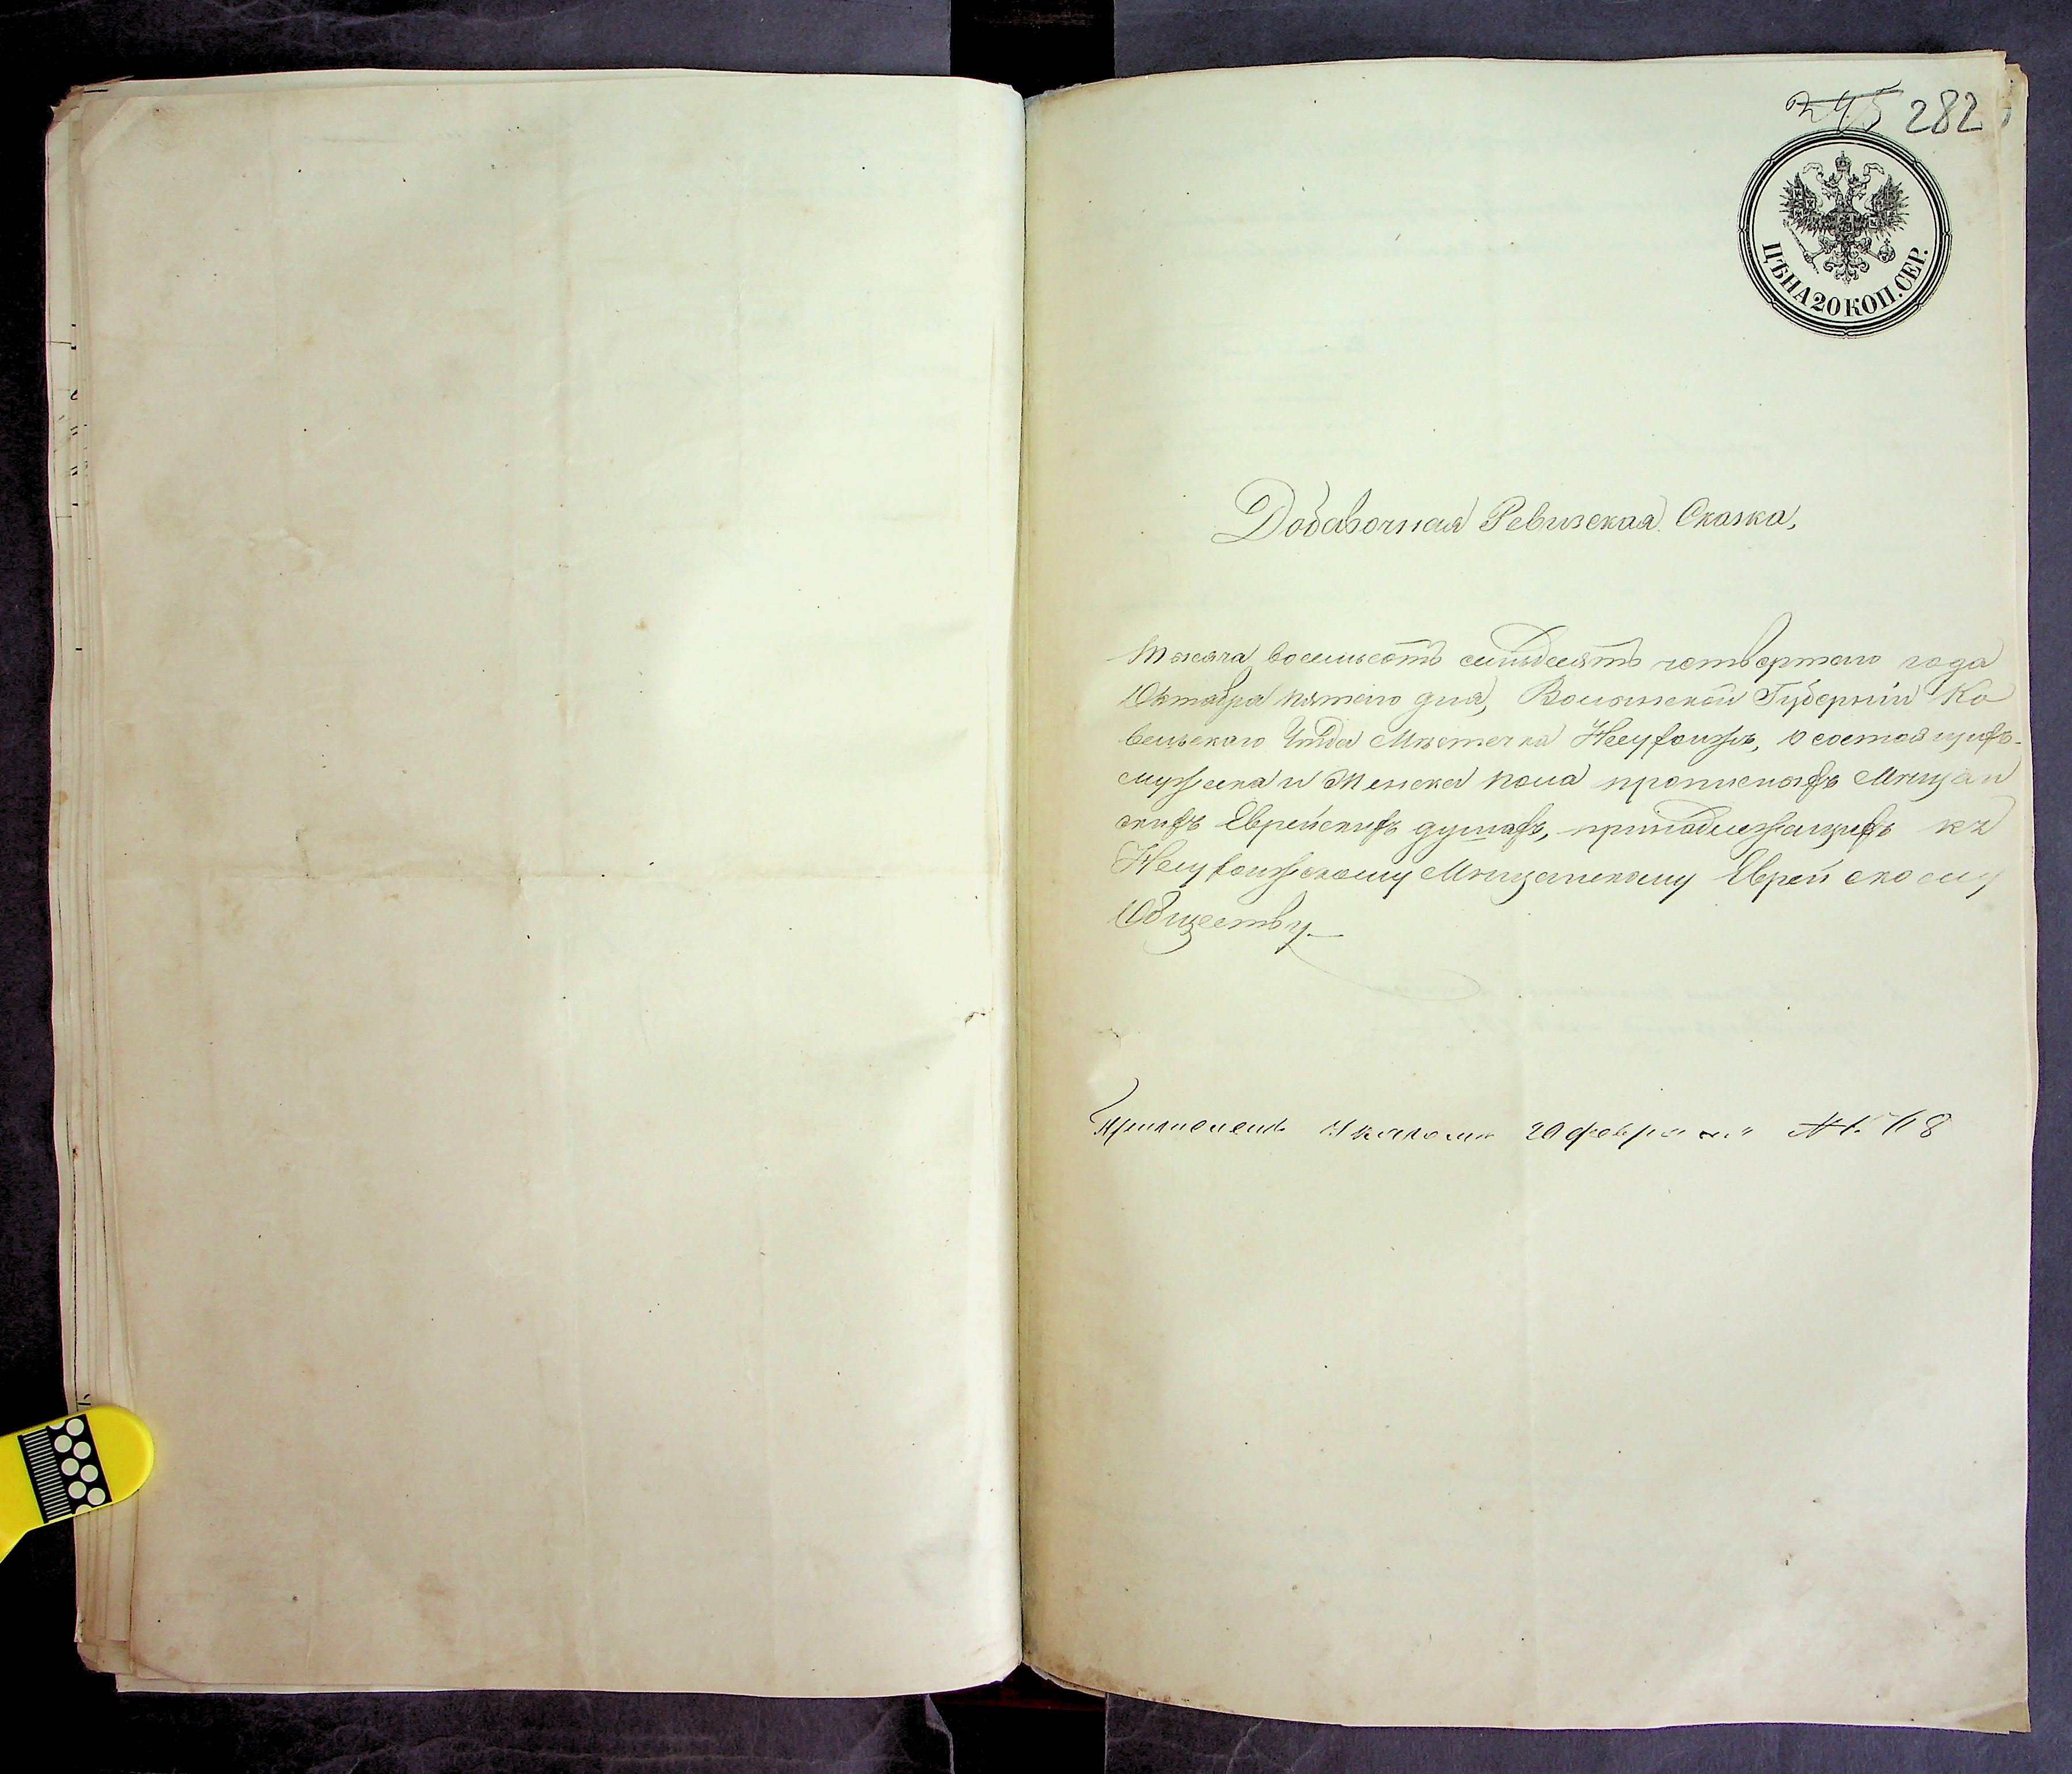 245 282
ЦѢНА 20 КОП. СЕР.
Добавочная Ревизская Сказка,
Тысяча восемьсотъ семьдесятъ четвертаго года
Октября пятаго дня, Волынской Губерніи Ко
вельскаго Уѣзда Мѣстечка Несухоижъ, о состоящихъ
мужеска и Женска пола прописныхъ Мѣщан
скихъ Еврейскихъ душахъ, принадлежащихъ къ
Несухоижскому Мѣщанскому Еврейскому
Обществу
Указомъ 20 февраля №